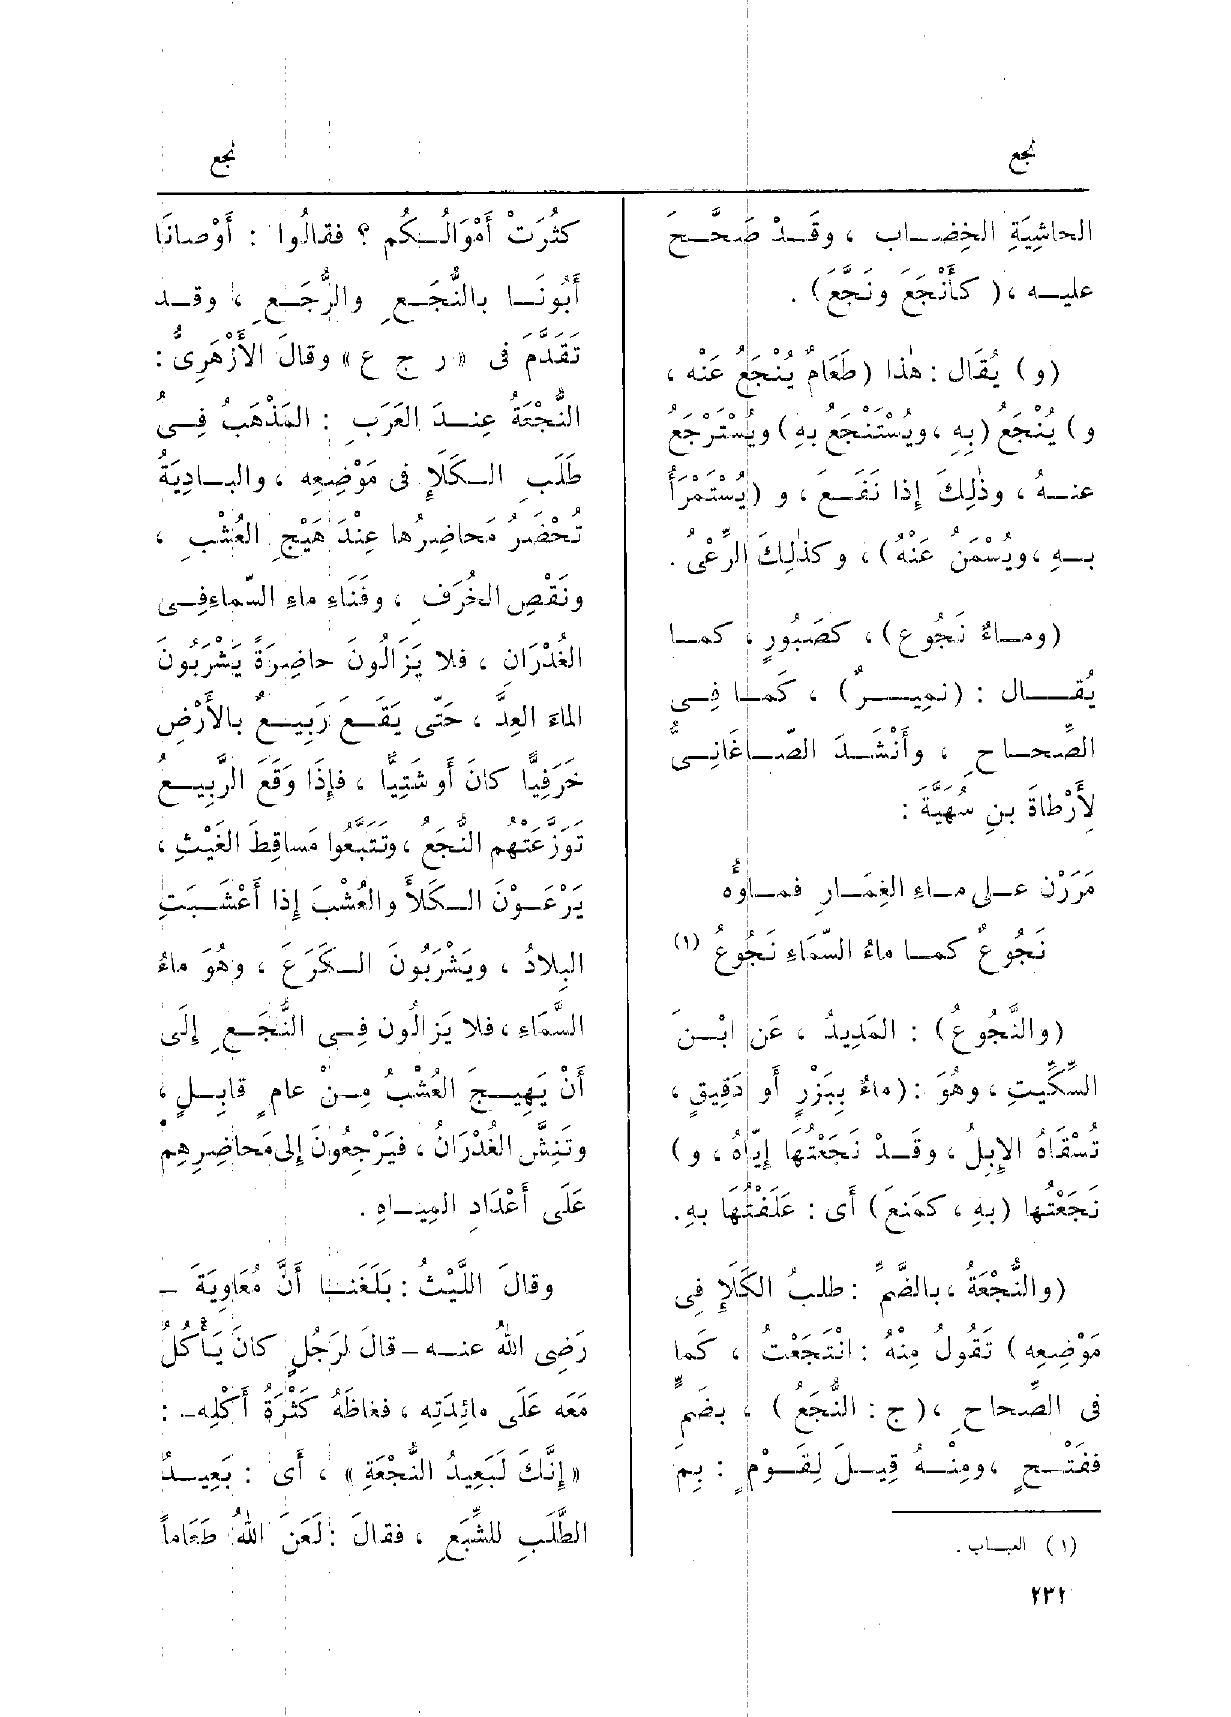 نجع
نجع
الحاشِيَةِ الخِضابِ ، وقَدْ صَحَّحَ
عليه ، ( كأَنْجَعَ ونَجَّعَ ) .
(و) يُقَال : هٰذا (طَعَامٌ يُنْجَعُ عَنْه ،
و) يُنْجَعُ (بِهِ ، ويُسْتَنْجَعُ بهِ) ويُسْتَرْجَعُ
عنهُ ، وذٰلِكَ إِذا نَفَعَ ، و (يُسْتَمْرَأُ
بهِ ، ويُسْمَنُ عَنْهُ) ، وكذٰلِكَ الرِّعْىُ .
(وماءٌ نَجُوع) ، كصَبُورٍ ، كما
يُقال : (نميرٌ) ، كَما فِى
الصِّحاحِ ، وأَنْشَدَ الصّاغَانِىُّ
لِأَرْطاةَ بنِ سُهَيَّةَ :
مَرَرْن على ماءِ الغِمَارِ فماوُهُ
نَجُوعٌ كما ماءُ السّمَاءِ نَجُوعُ (١)
(والنَّجُوعُ) : المَدِيدُ ، عَن ابْنِ
السِّكِّيتِ ، وهُوَ : (ماءٌ ببَزْرٍ أَو دَقِيقٍ ،
تُسْقَاهُ الإِبِلُ ، وقَدْ نَجَعْتُهَا إِيّاهُ ، و)
نَجَعْتُها (بهِ ، كمَنعَ) أَى : عَلَفْتُهَا بهِ.
(والنُّجْعَةُ ، بالضَّمِّ : طلبُ الكَلَإِ فِى
مَوْضِعِه) تَقُولُ مِنْهُ : انْتَجَعْتُ ، كما
فى الصِّحاحِ ، (ج : النُّجَعُ) ، بضَمٍّ
ففَتْحٍ ، ومِنْهُ قِيلَ لِقَوْمٍ : بِمَ
(١) العباب .
٢٣٢
كثُرَتْ أَمْوَالُكُم ؟ فقالُوا : أَوْصانَا
أَبُونَا بالنُّجَعِ والرُّجَعِ ، وقد
تَقَدَّمَ فى « ر ج ع » وقالَ الأَزْهَرِىُّ :
النُّجْعَةُ عِندَ العَرَبِ : المَذْهَبُ فِى
طَلَبِ الكَلَإِ فى مَوْضِعِه ، والبادِيَةُ
تُحْضَرُ مَحاضِرُها عِنْدَ هَيْجِ العُشْبِ ،
ونَقْصِ الخُرَفِ ، وفَنَاءِ ماءِ السّماءِ فِى
الغُدْرَانِ ، فلا يَزَالُونَ حاضِرَةً يَشْرَبُونَ
الماءَ العِدَّ ، حَتّى يَقَعَ رَبِيعٌ بالأَرْضِ
خَرَفِيًّا كانَ أَو شَتِيًّا ، فإِذَا وَقَعَ الرَّبِيعُ
تَوَزَّعَتْهم النُّجَعُ ، وتَتَبَّعُوا مَساقِطَ الغَيْثِ ،
يَرْعَوْنَ الكَلأَ والعُشْبَ إِذا أَعْشَبَتِ
البِلادُ ، ويَشْرَبُونَ الكَرَعَ ، وهُوَ ماءُ
السَّمَاءِ ، فلا يَزالُون فِى النُّجَعِ إِلَى
أَنْ يَهِيجَ العُشْبُ مِنْ عامٍ قابِلٍ ،
وتَنِشَّ الغُدْرَانُ ، فيَرْجِعُونَ إِلى مَحاضِرِهِم
عَلَى أَعْدَادِ المِياهِ .
وقالَ اللَّيْثُ : بَلَغَنا أَنَّ مُعَاوِيَةَ –
رَضِى اللهُ عنه – قالَ لرَجُلٍ كانَ يَأْكُلُ
مَعَه عَلَى مائِدَتِه ، فغاظَهُ كَثْرَةُ أَكْلِه – :
« إِنَّكَ لَبَعِيدُ النُّجْعَةِ » ، أَى : بَعِيدُ
الطَّلَبِ للشِّبَعِ ، فقالَ : لَعَنَ اللهُ طَعَاماً